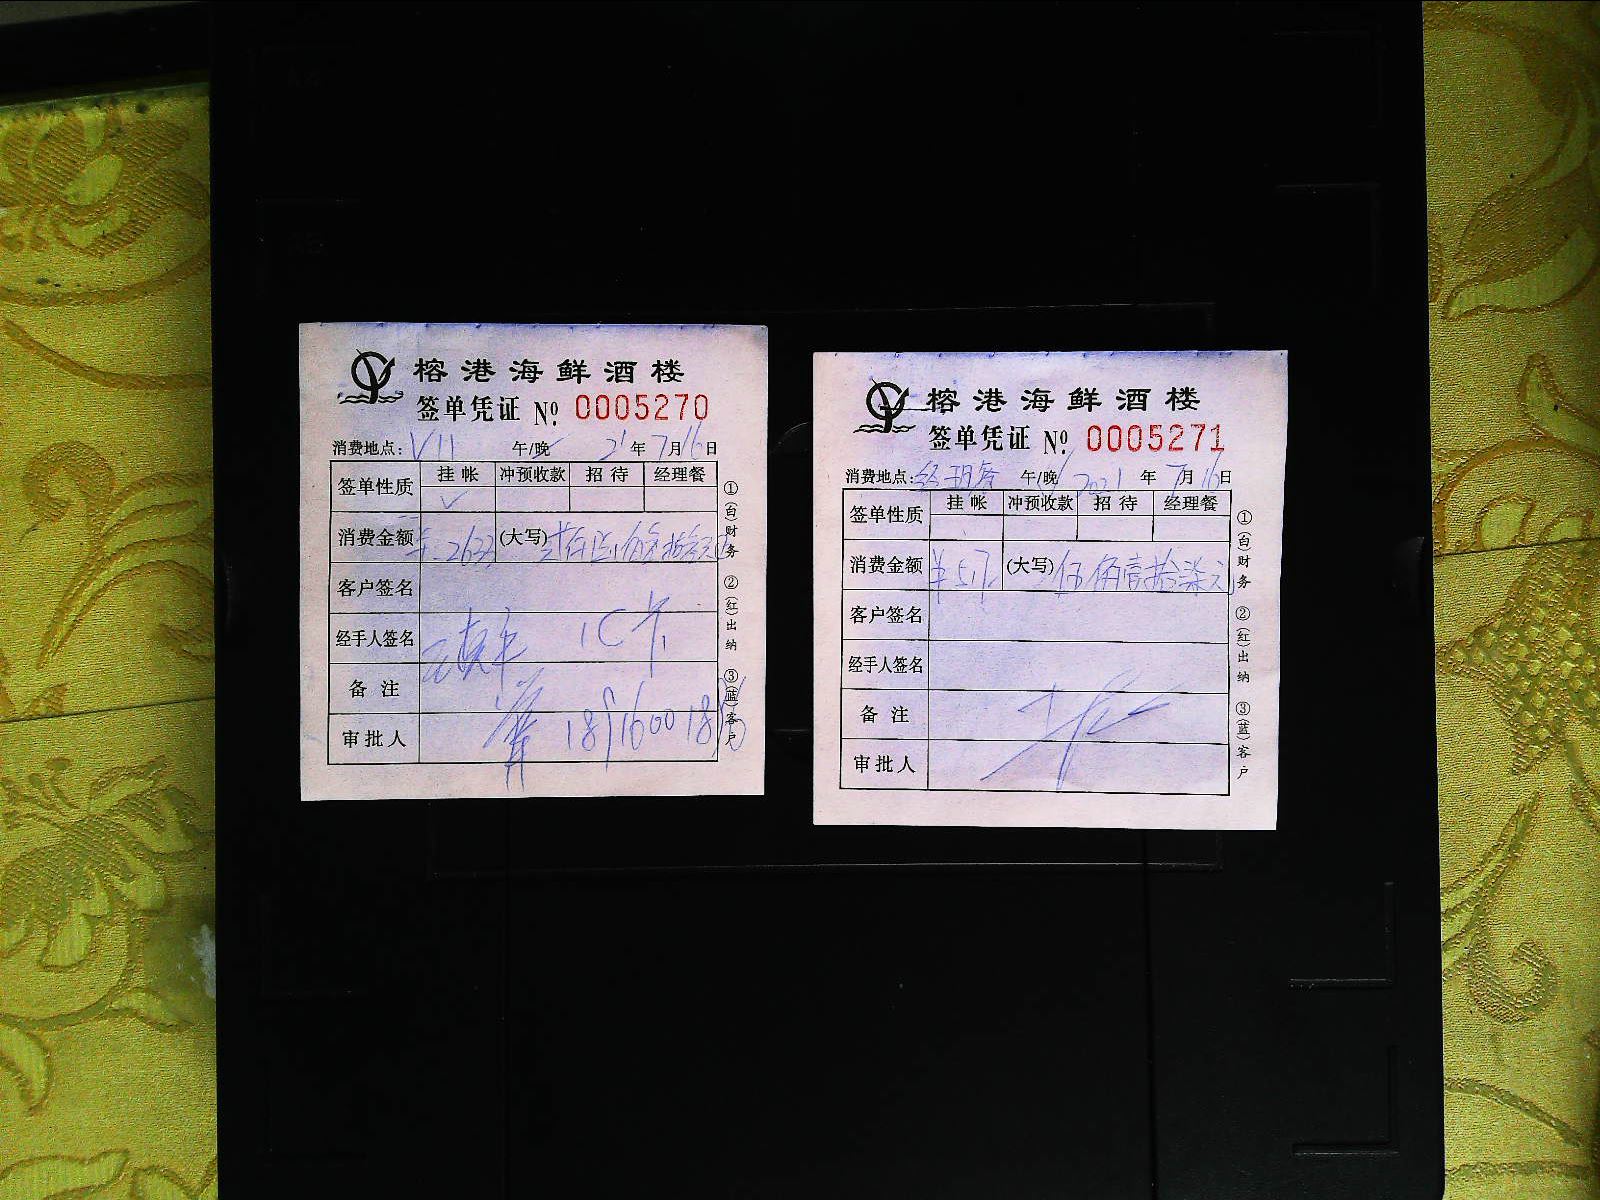 榕港海鲜酒楼
签单凭证 № 0005270
消费地点: V11 午/晚 21年7月16日
签单性质 挂帐 冲预收款 招待 经理餐
消费金额 (大写)
客户签名
经手人签名 IC卡
备注
审批人
①(白)财务
②(红)出纳
③(蓝)客户
榕港海鲜酒楼
签单凭证 № 0005271
消费地点: 午/晚 2021年7月16日
签单性质 挂帐 冲预收款 招待 经理餐
消费金额 (大写)
客户签名
经手人签名
备注
审批人
①(白)财务
②(红)出纳
③(蓝)客户